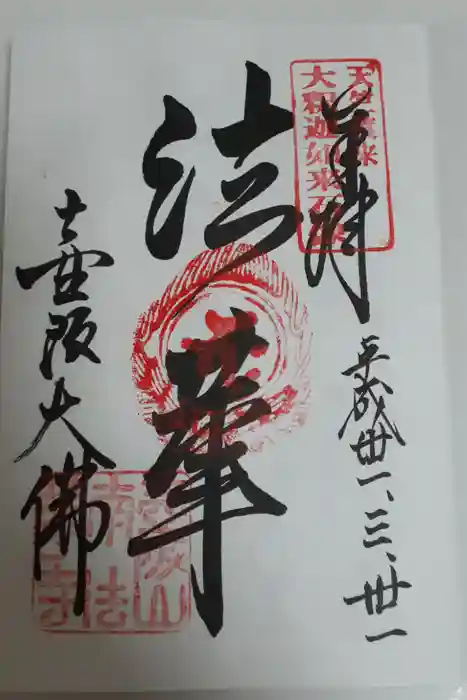 奉拝
平成卅一、三、卅一
法華
壺阪大佛
天竺渡来
大釈迦如来石像
壺阪山
南法
華寺